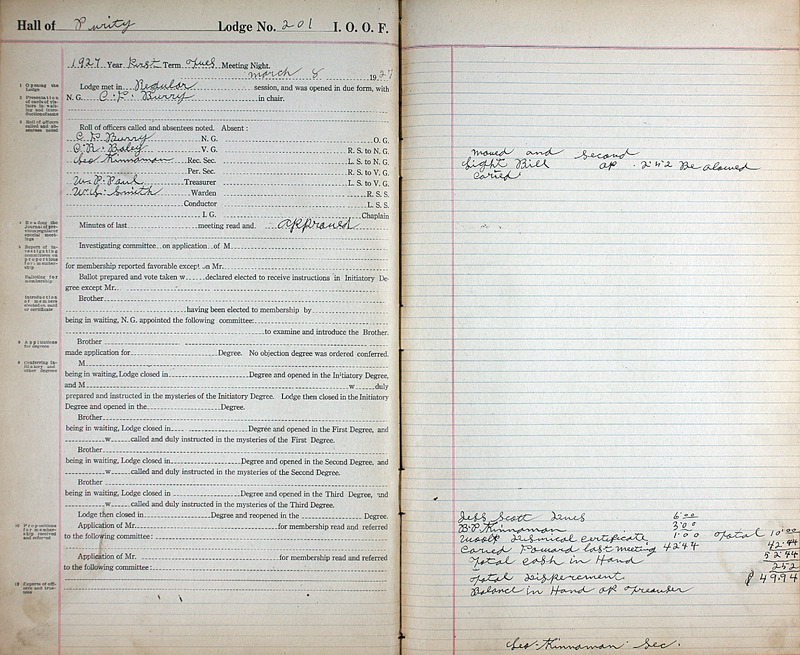 Hall of Purity Lodge No. 201 I. O. O. F.
1927 Year First Term Tues Meeting Night.
March 8 1927
Lodge met in Regular session, and was opened in due form, with
N. G. C. P. Burry in chair.
Roll of officers called and absentees noted. Absent:
C P Burry N. G. O. G.
C. R. Baley V. G. R. S. to N. G.
Geo Kinnaman Rec. Sec. L. S. to N. G.
Per. Sec. R. S. to V. G.
W. P. Paul Treasurer L. S. to V. G.
W. S. Smith Warden R. S. S.
Conductor L. S. S.
I. G. Chaplain
Minutes of last meeting read and approved
Investigating committee on application of M
for membership reported favorable except on Mr.
Ballot prepared and vote taken w declared elected to receive instructions in Initiatory De-
gree except Mr.
Brother
having been elected to membership by
being in waiting, N. G. appointed the following committee:
to examine and introduce the Brother.
Brother
made application for Degree. No objection degree was ordered conferred.
M
being in waiting, Lodge closed in Degree and opened in the Initiatory Degree,
and M w duly
prepared and instructed in the mysteries of the Initiatory Degree. Lodge then closed in the Initiatory
Degree and opened in the Degree.
Brother
being in waiting, Lodge closed in Degree and opened in the First Degree, and
w called and duly instructed in the mysteries of the First Degree.
Brother
being in waiting, Lodge closed in Degree and opened in the Second Degree, and
w called and duly instructed in the mysteries of the Second Degree.
Brother
being in waiting, Lodge closed in Degree and opened in the Third Degree, and
w called and duly instructed in the mysteries of the Third Degree.
Lodge then closed in Degree and reopened in the Degree.
Application of Mr. for membership read and referred
to the following committee:
Application of Mr. for membership read and referred
to the following committee:
1 Opening the Lodge
3 Roll of officers called and absentees noted
Balloting for membership
Introduction of members elected on card or certificate
8 Applications for degrees
9 Conferring Initiatory and other Degrees
10 Propositions for membership received and referred
12 Reports of officers and trustees
moved and Second
Light Bill of 2.52 Be alowed
Caried
Jess Scott Dues 6.00
B. P. Kinnaman 3.00
Woolf Dismical certificate 1.00 Total 10.00
Caried Foward last meeting 4244 42.44
Total cash in Hand 5244
252
Total Dispercement $ 49.94
Balance in Hand of Treauder
Geo. Kinnaman Sec.